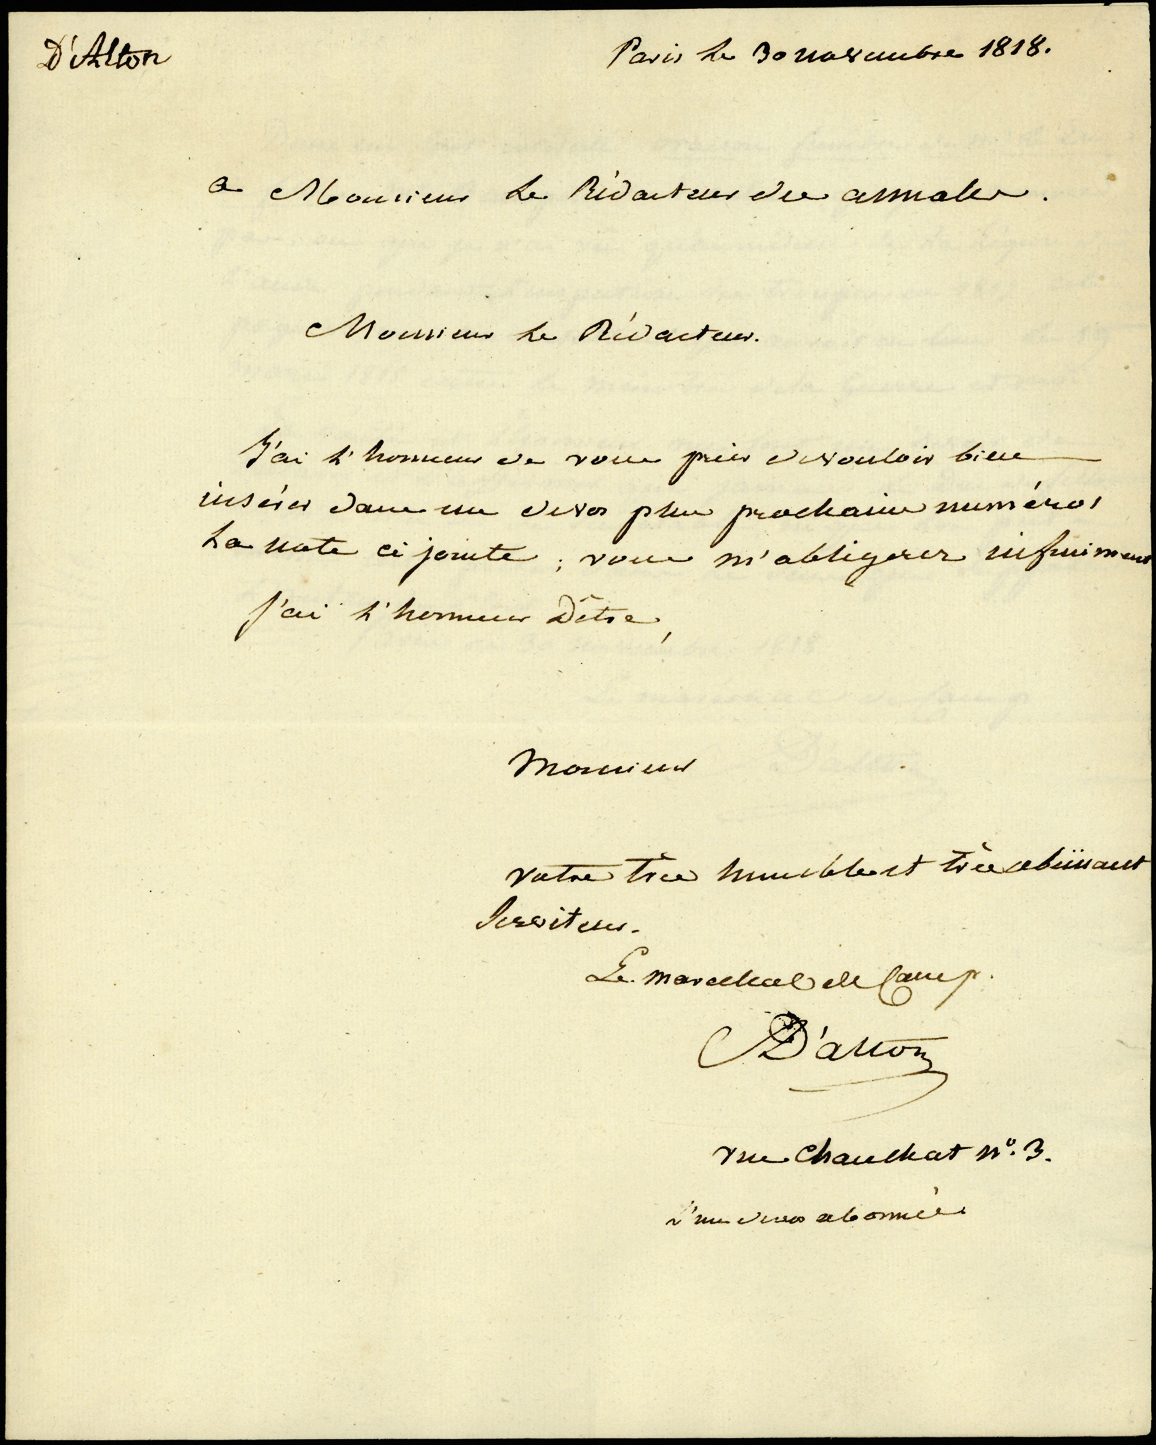 D'Alton
Paris le 30 novembre 1818.
a Monsieur le Rédacteur des annales.
Monsieur le Rédacteur.
J'ai l'honneur de vous prier de vouloir bien
insérer dans un de vos plus prochains numéros
la note ci jointe ; vous m'obligerez infiniment
j'ai l'honneur d'être,
Monsieur
votre très humble et très obéissant
serviteur.
Le marechal de Camp.
D'alton
rue Chauchat n.º 3.
l'un de vos abonnés